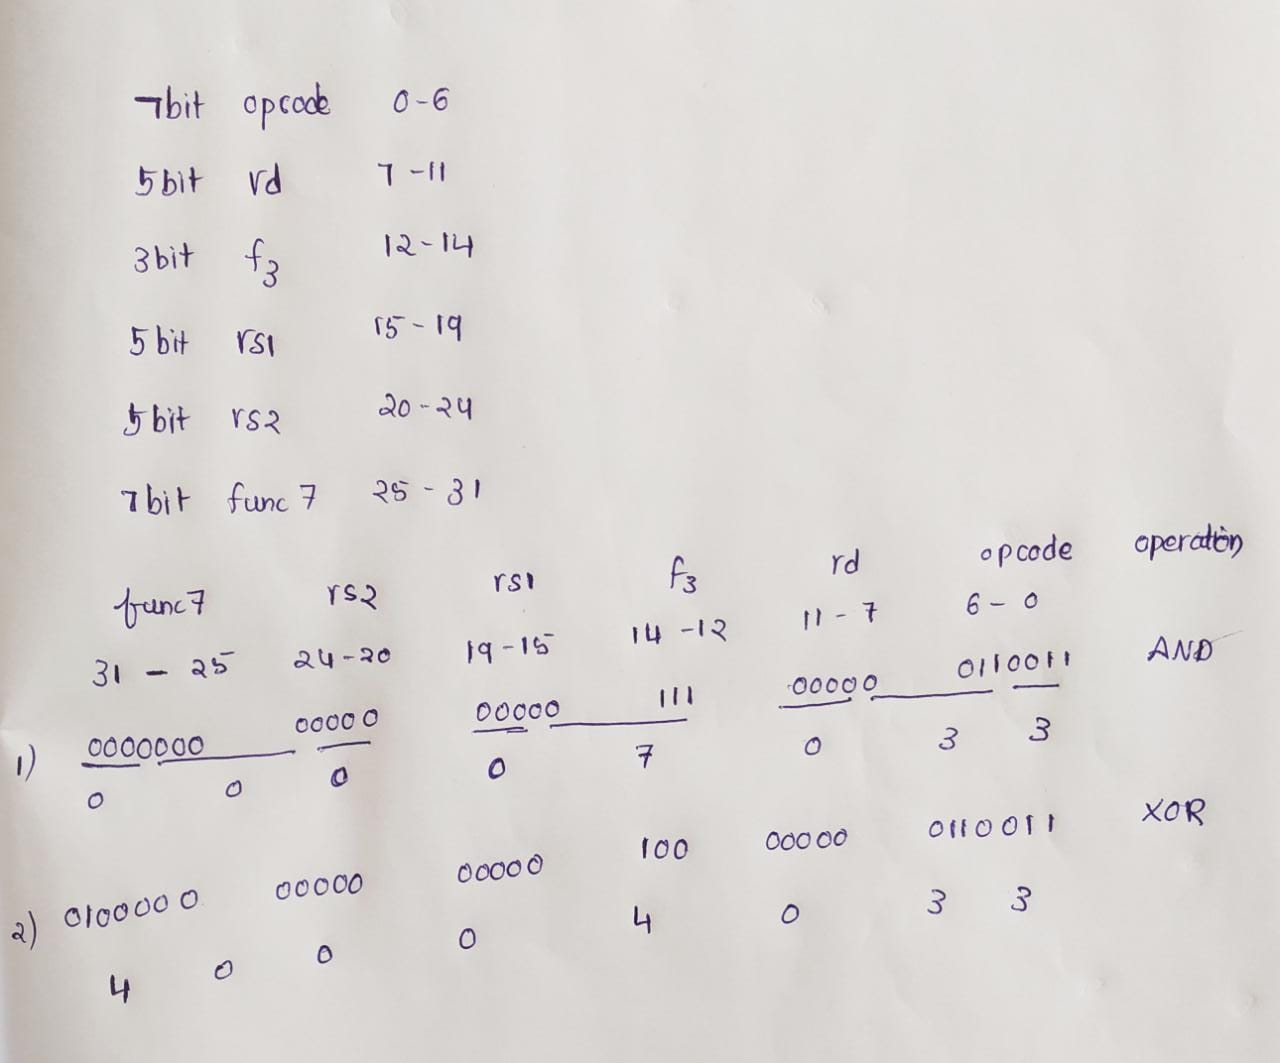 7bit opcode 0-6
5bit rd 7-11
3bit f3 12-14
5bit rs1 15-19
5bit rs2 20-24
7bit func7 25-31
func7 rs2 rs1 f3 rd opcode operation
31-25 24-20 19-15 14-12 11-7 6-0
1) 0000000 00000 00000 111 00000 0110011 AND
0 0 0 0 7 0 3 3
2) 0100000 00000 00000 100 00000 0110011 XOR
4 0 0 0 4 0 3 3